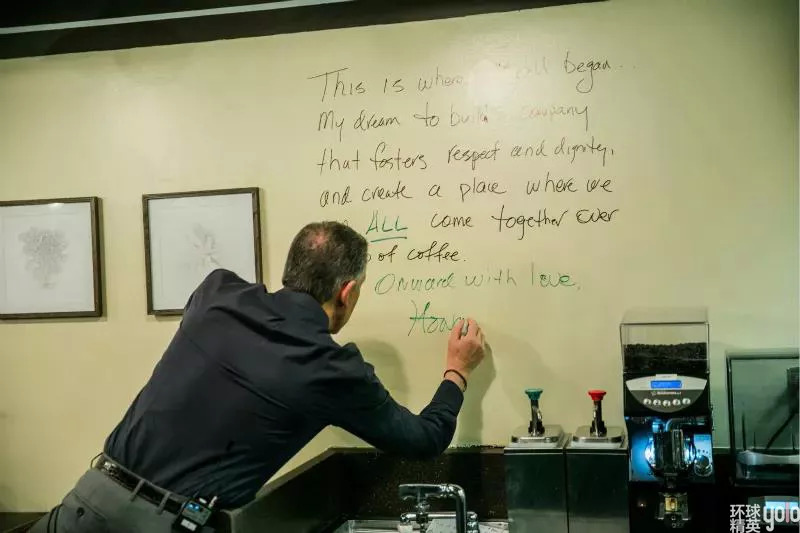 This is where it all began...
My dream to build a company
that fosters respect and dignity,
and create a place where we
ALL come together over
of coffee.
Onward with love,
环球
精英
yolo